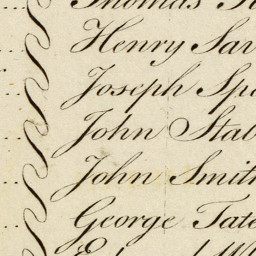 Thomas
Henry Sav
Joseph Spa
John Stab
John Smith
George Tate